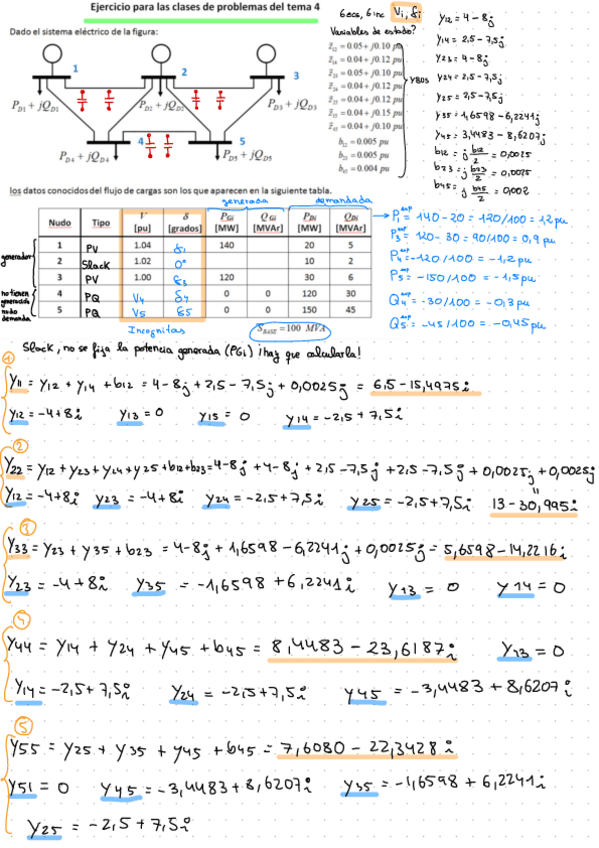 Ejercicio para las clases de problemas del tema 4
Dado el sistema eléctrico de la figura:
1
2
3
4
5
P_D1 + jQ_D1
P_D2 + jQ_D2
P_D3 + jQ_D3
P_D4 + jQ_D4
P_D5 + jQ_D5
6 ecs, 6 inc Vi, δi
Variables de estado?
z̄12 = 0.05 + j0.10 pu
= 0.04 + j0.12 pu
= 0.05 + j0.10 pu
= 0.04 + j0.12 pu
= 0.04 + j0.12 pu
= 0.04 + j0.15 pu
z̄45 = 0.04 + j0.10 pu
b12 = 0.005 pu
b23 = 0.005 pu
b45 = 0.004 pu
YBUS
y12 = 4 - 8j
y14 = 2,5 - 7,5j
y23 = 4 - 8j
y24 = 2,5 - 7,5j
y25 = 2,5 - 7,5j
y35 = 1,6598 - 6,2241j
y45 = 3,4483 - 8,6207j
b12 = j b12/2 = 0,0025
b23 = j b23/2 = 0,0025
b45 = j b45/2 = 0,002
los datos conocidos del flujo de cargas son los que aparecen en la siguiente tabla.
generada demandada
Nudo Tipo V [pu] δ [grados] PGi [MW] QGi [MVAr] PDi [MW] QDi [MVAr]
1 PV 1.04 δ1 140 20 5
2 Slack 1.02 0° 10 2
3 PV 1.00 δ3 120 30 6
4 PQ V4 δ4 0 0 120 30
5 PQ V5 δ5 0 0 150 45
generador
no tienen generación nudo demanda
Incognitas
S_BASE = 100 MVA
P1esp = 140 - 20 = 120/100 = 1,2 pu
P3esp = 120 - 30 = 90/100 = 0,9 pu
P4esp = -120/100 = -1,2 pu
P5esp = -150/100 = -1,5 pu
Q4esp = -30/100 = -0,3 pu
Q5esp = -45/100 = -0,45 pu
Slack, no se fija la potencia generada (PGi) ¡hay que calcularla!
1
Y11 = y12 + y14 + b12 = 4 - 8j + 2,5 - 7,5j + 0,0025j = 6,5 - 15,4975i
Y12 = -4 + 8i Y13 = 0 Y15 = 0 Y14 = -2,5 + 7,5i
2
Y22 = y12 + y23 + y24 + y25 + b12 + b23 = 4-8j + 4-8j + 2,5 - 7,5j + 2,5 - 7,5j + 0,0025j + 0,0025j
=
Y12 = -4 + 8i Y23 = -4 + 8i Y24 = -2,5 + 7,5i Y25 = -2,5 + 7,5i 13 - 30,995i
3
Y33 = y23 + y35 + b23 = 4-8j + 1,6598 - 6,2241j + 0,0025j = 5,6598 - 14,2216i
Y23 = -4 + 8i Y35 = -1,6598 + 6,2241i Y13 = 0 Y14 = 0
4
Y44 = y14 + y24 + y45 + b45 = 8,4483 - 23,6187i Y13 = 0
Y14 = -2,5 + 7,5i Y24 = -2,5 + 7,5i Y45 = -3,4483 + 8,6207i
5
Y55 = y25 + y35 + y45 + b45 = 7,6080 - 22,3428i
Y51 = 0 Y45 = -3,4483 + 8,6207i Y35 = -1,6598 + 6,2241i
Y25 = -2,5 + 7,5i